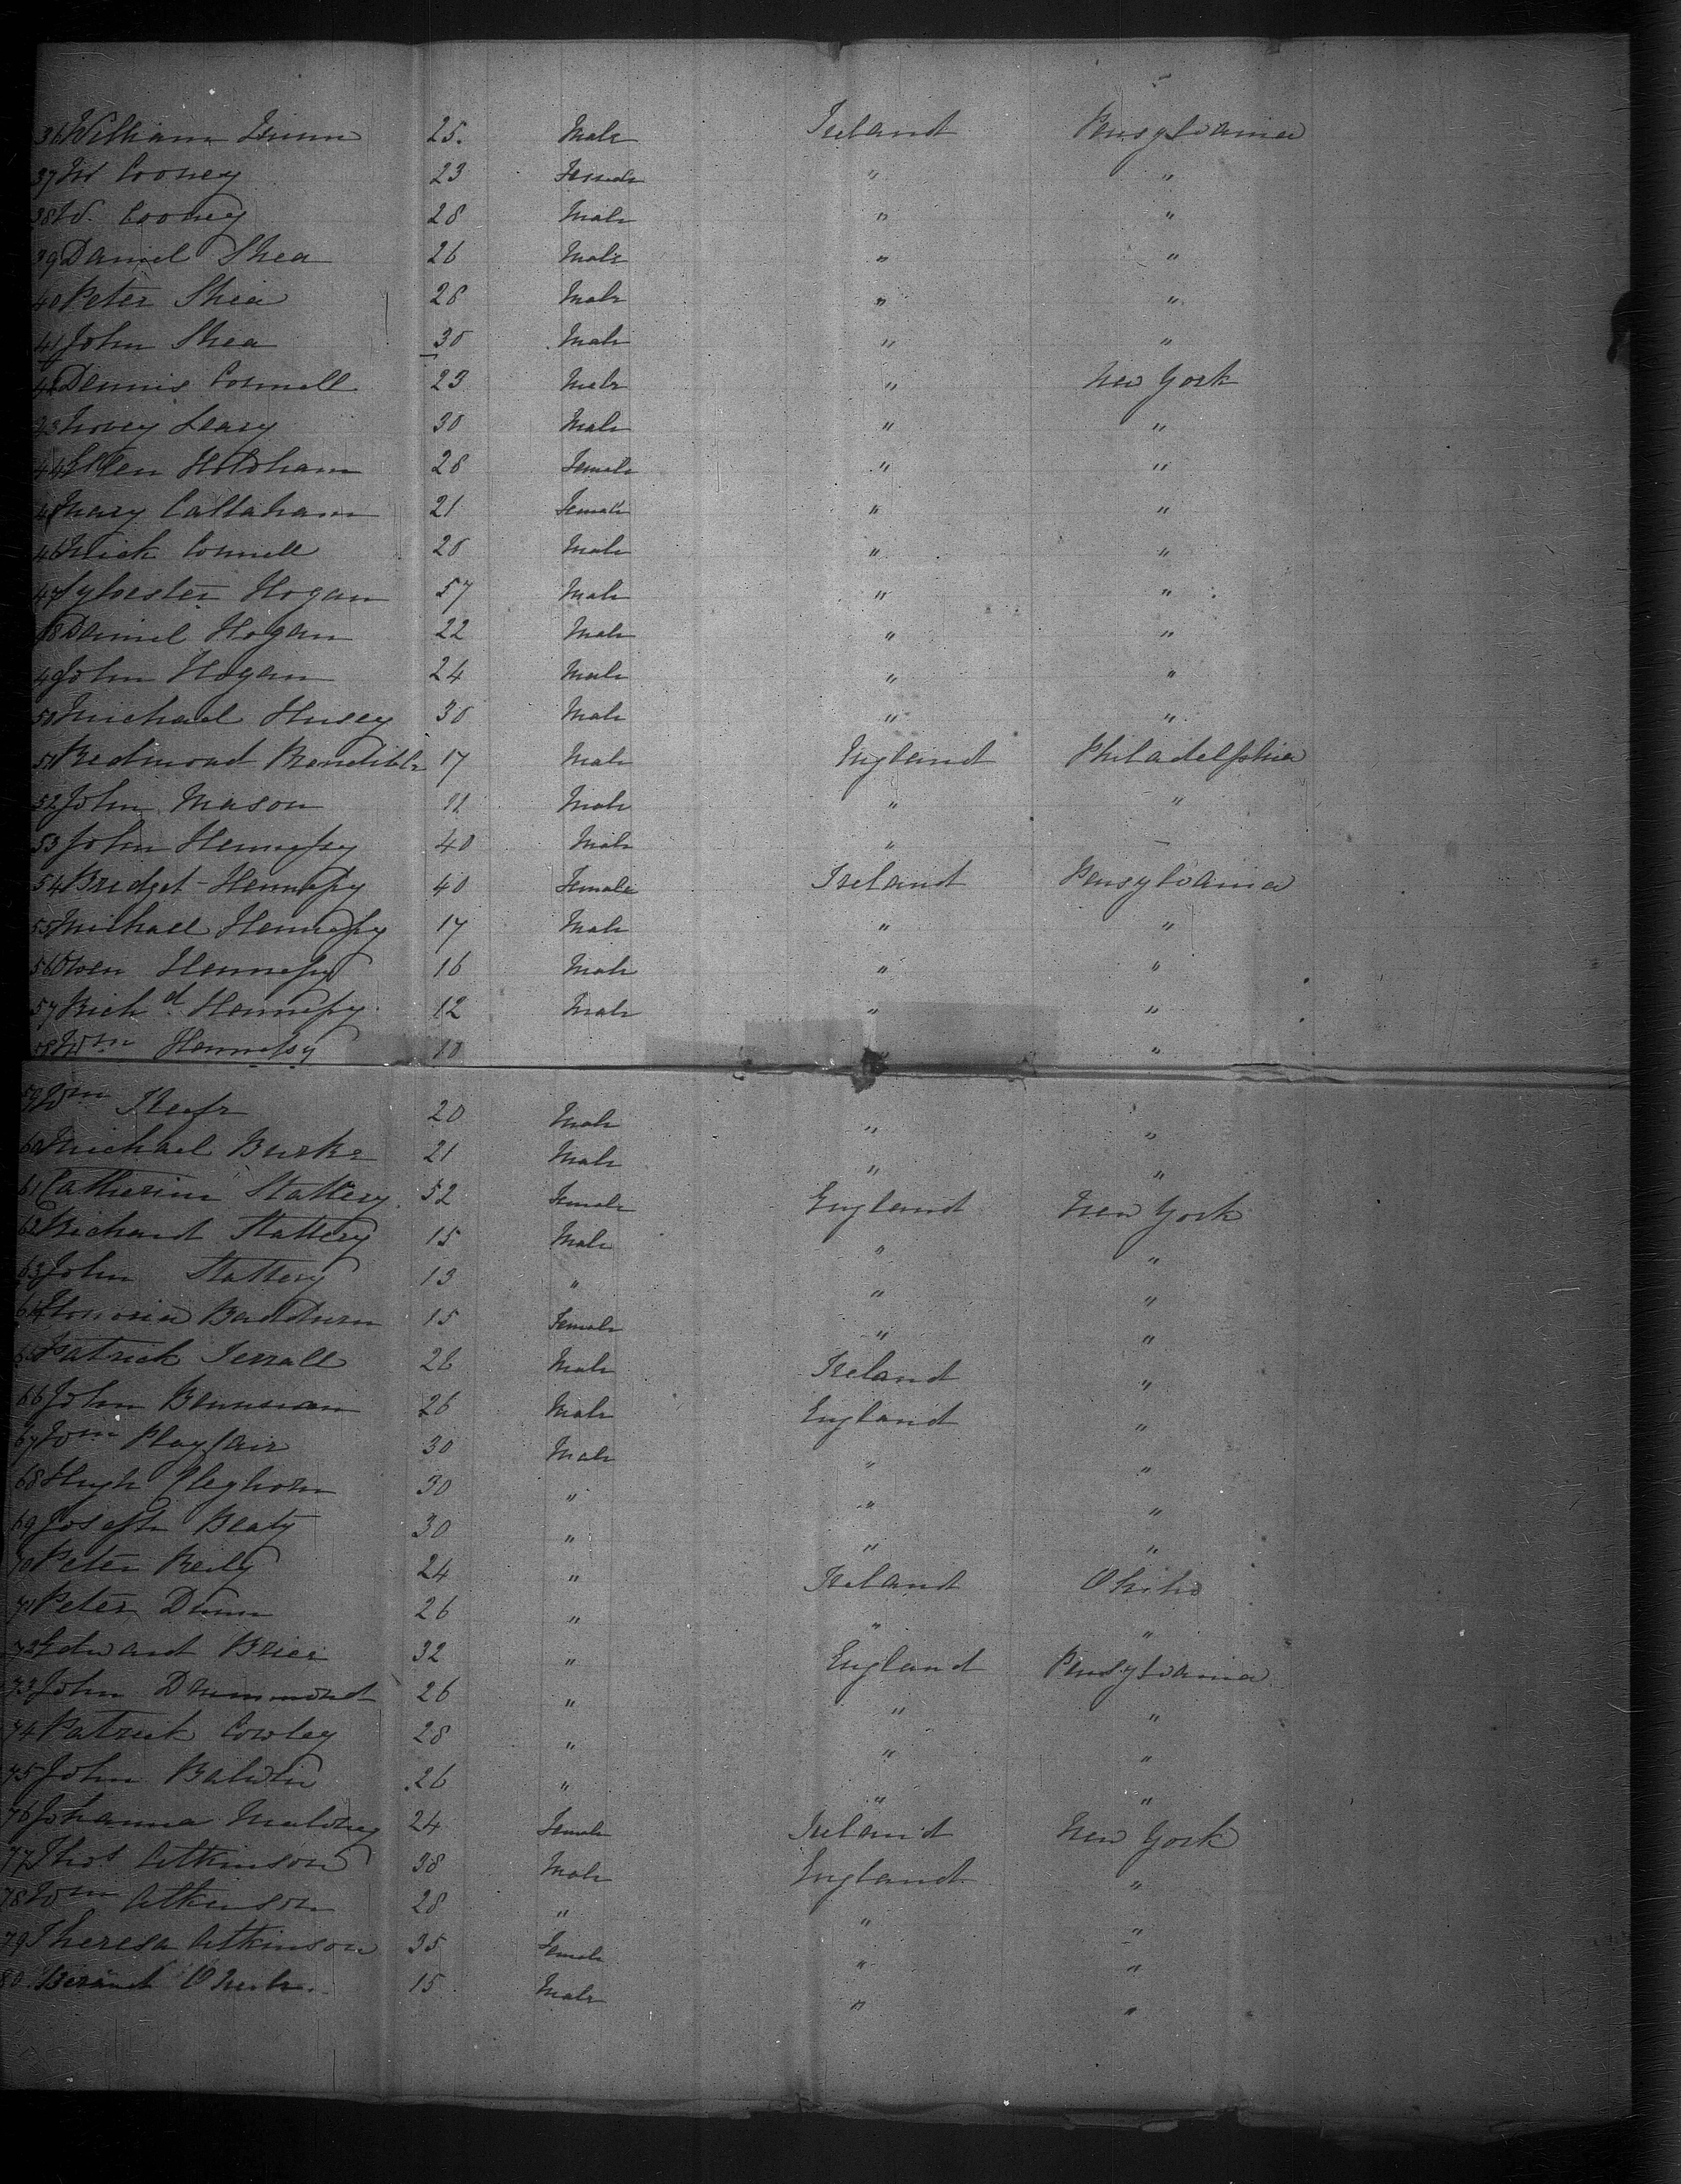 36 William Quinn 25. Male Ireland Pensylvania
37 M Cooney 23 Female " "
38 W. Cooney 28 Male " "
39 Daniel Shea 26 Male " "
40 Peter Shea 28 Male " "
41 John Shea 30 Male " "
42 Dennis Connell 23 Male " New York
43 Leary 30 Male " "
44 Ellen Holohan 28 Female " "
45 Mary Callahan 21 Female " "
46 Mick Connell 28 Male " "
47 Sylvester Hogan 57 Male " "
48 Daniel Hogan 22 Male " "
49 John Hogan 24 Male " "
50 Michael Husey 30 Male " "
51 Redmond 17 Male England Philadelphia
52 John Mason 21 Male " "
53 John Hennessy 40 Male "
54 Bridget Hennessy 40 Female Ireland Pensylvania
55 Michael Hennessy 17 Male " "
56 Owen Hennessy 16 Male " "
57 Richd Hennessy 12 Male " "
58 Wm Hennessy 10 "
59 Wm Keefe 20 Male " "
60 Michael Burke 21 Male " "
61 Catherine Slattery 52 Female England New York
62 Richard Slattery 15 Male " "
63 John Slattery 13 " " "
64 Honoria 15 Female " "
65 Patrick 26 Male Ireland "
66 John 26 Male England "
67 Wm Playfair 30 Male " "
68 Hugh Cleghorn 30 " " "
69 Joseph Beaty 30 " " "
70 Peter Reily 24 " Ireland Ohiho
71 Peter Dunn 26 " " "
72 Edward Brier 32 " England Pensylvania
73 John Drummond 26 " " "
74 Patrick Cowley 28 " " "
75 John Balwin 26 " " "
76 Johanna Maloney 24 Female Ireland New York
77 Thos Atkinson 38 Male England "
78 Wm Atkinson 28 " " "
79 Theresa Atkinson 35 Female " "
80 15 Male " "